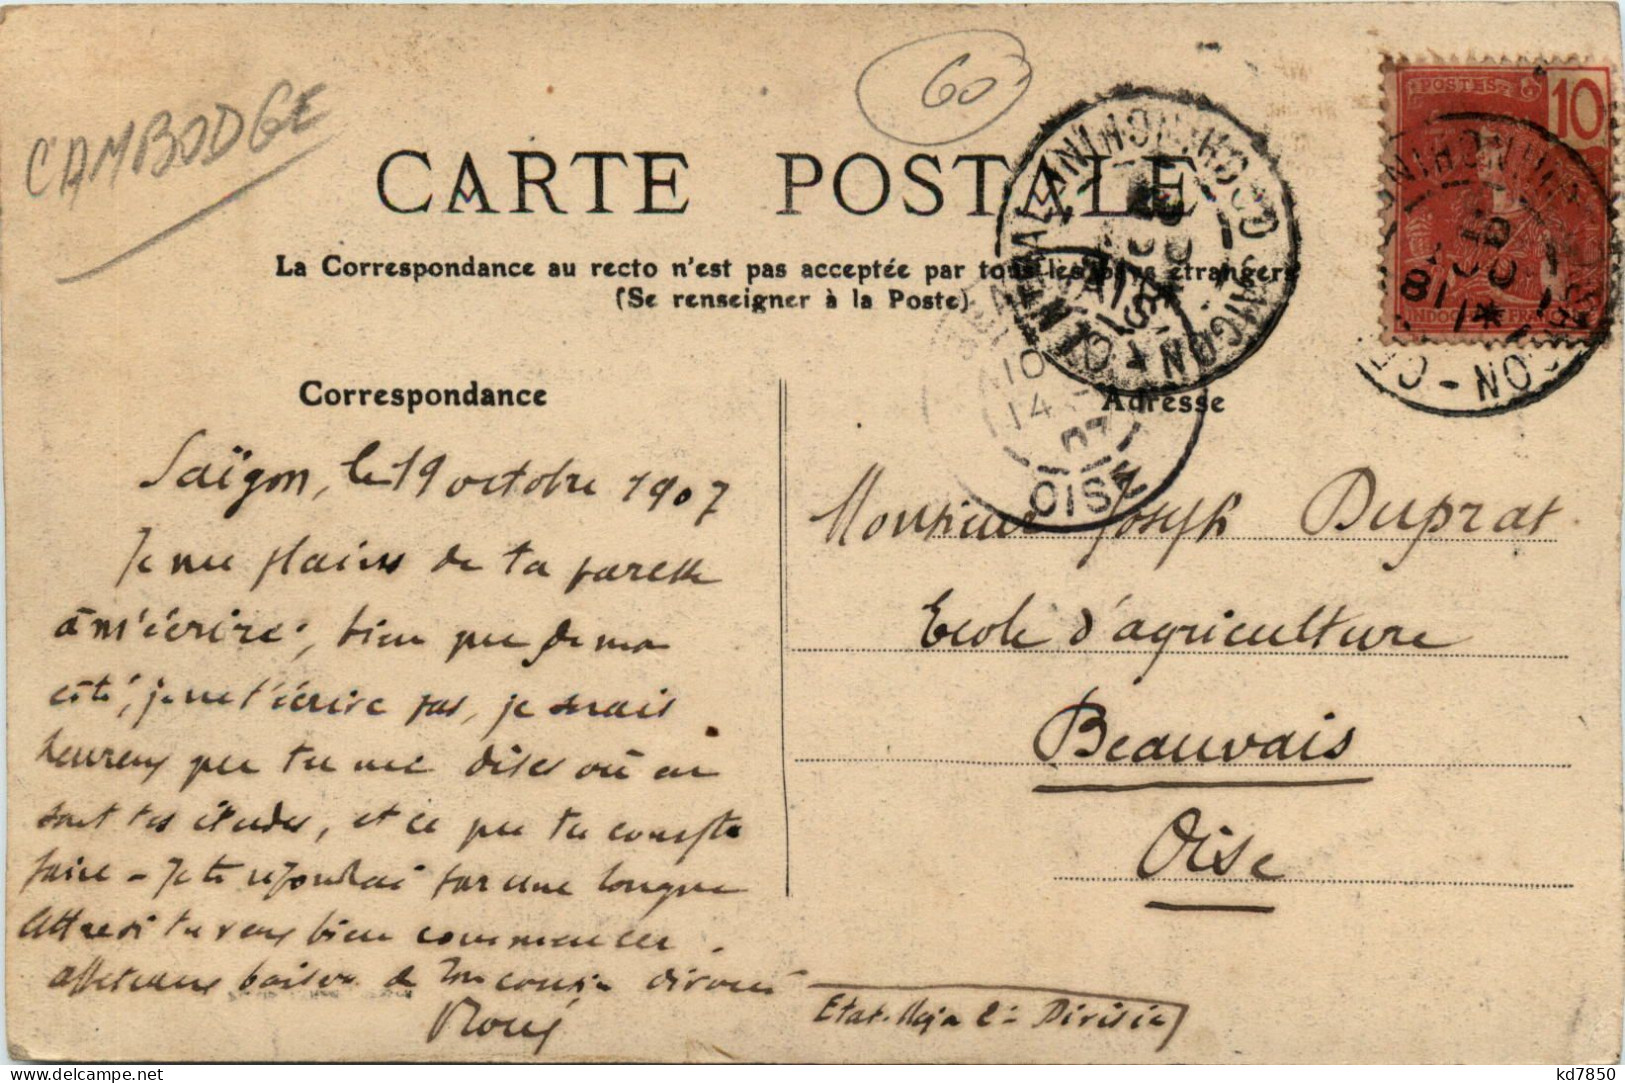 CAMBODGE
60
CARTE POSTALE
La Correspondance au recto n'est pas acceptée par tous les pays étrangers
(Se renseigner à la Poste)
POSTES 10
INDO-CHINE FRANÇAISE
SAIGON-CENTRAL COCHINCHINE
SAIGON - CENTRAL COCHINCHINE
BEAUVAIS
10
14
07
OISE
Correspondance
Saïgon, le 19 octobre 1907
Je me plains de ta paresse
à m'écrire, bien que de mon
côté, je ne t'écrive pas, je serais
heureux que tu me dises où en
sont tes études, et ce que tu comptes
faire - Je te répondrai par une longue
lettre si tu veux bien commencer.
affectueux baisers de ton cousin dévoué
Etat-Major 2e Division
Adresse
Monsieur Joseph Duprat
Ecole d'agriculture
Beauvais
Oise
kd7850